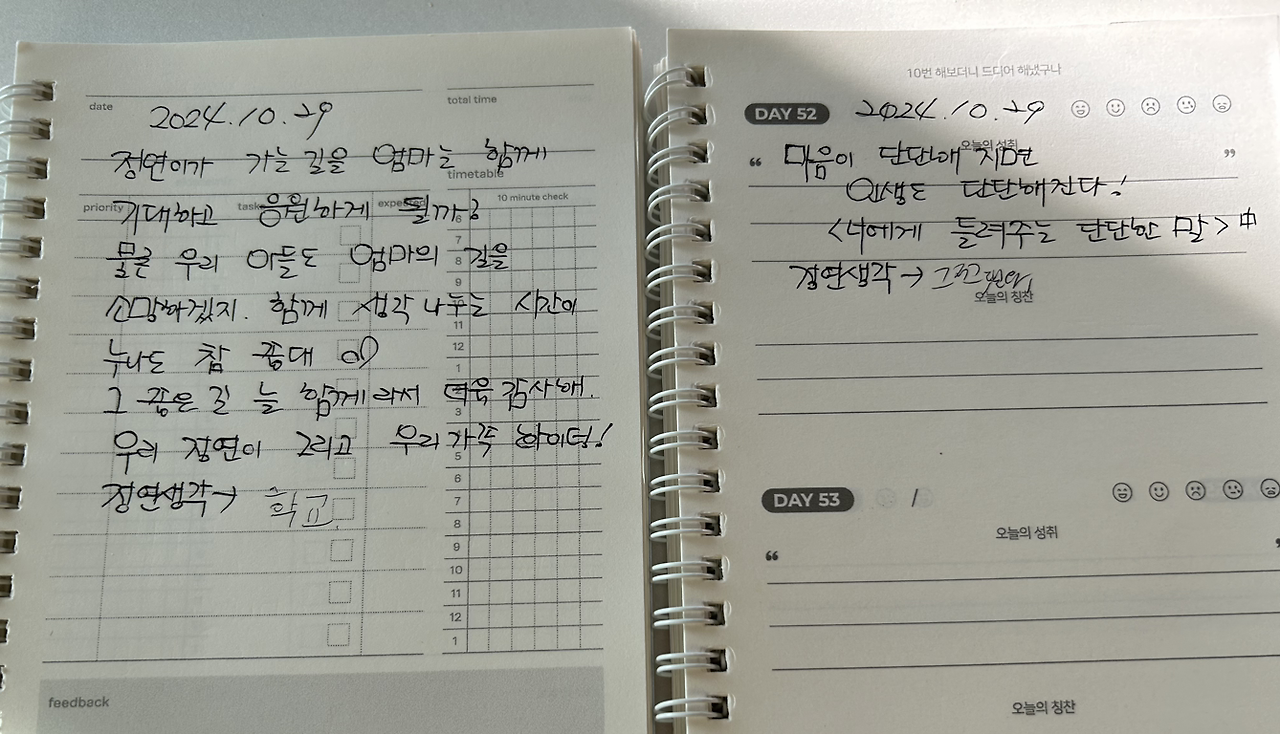 date
total time
2024.10.29
정연이가 가는 길을 엄마는 함께
timetable
priority
task
10 minute check
기대하고 응원하게 될까?
물론 우리 아들도 엄마의 길을
소망하겠지. 함께 생각 나누는 시간이
누나도 참 좋대
그 좋은 길 늘 함께라서 더욱 감사해.
우리 정연이 그리고 우리가족 화이팅!
정연생각→ 학교.
6
7
8
9
11
12
1
3
5
6
7
8
9
10
11
12
1
feedback
10번 해보더니 드디어 해냈구나
DAY 52 2024.10.29
오늘의 성취
“ 마음이 단단해지면 ”
인생도 단단해진다!
<너에게 들려주는 단단한 말> 中
정연생각→
오늘의 칭찬
DAY 53 /
오늘의 성취
“ ”
오늘의 칭찬